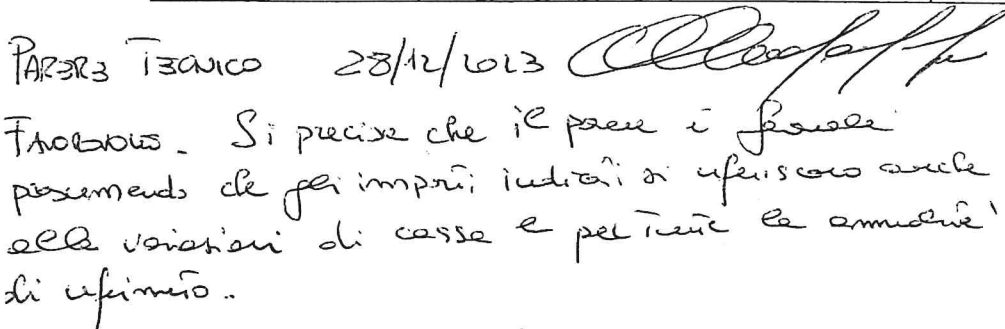 PARERE TECNICO 28/12/2023
FAVOREVOLE. Si precisa che il parere è favorevole
presumendo che gli importi indicati si riferiscono anche
alle variazioni di cassa e per tutte le annualità
di riferimento.